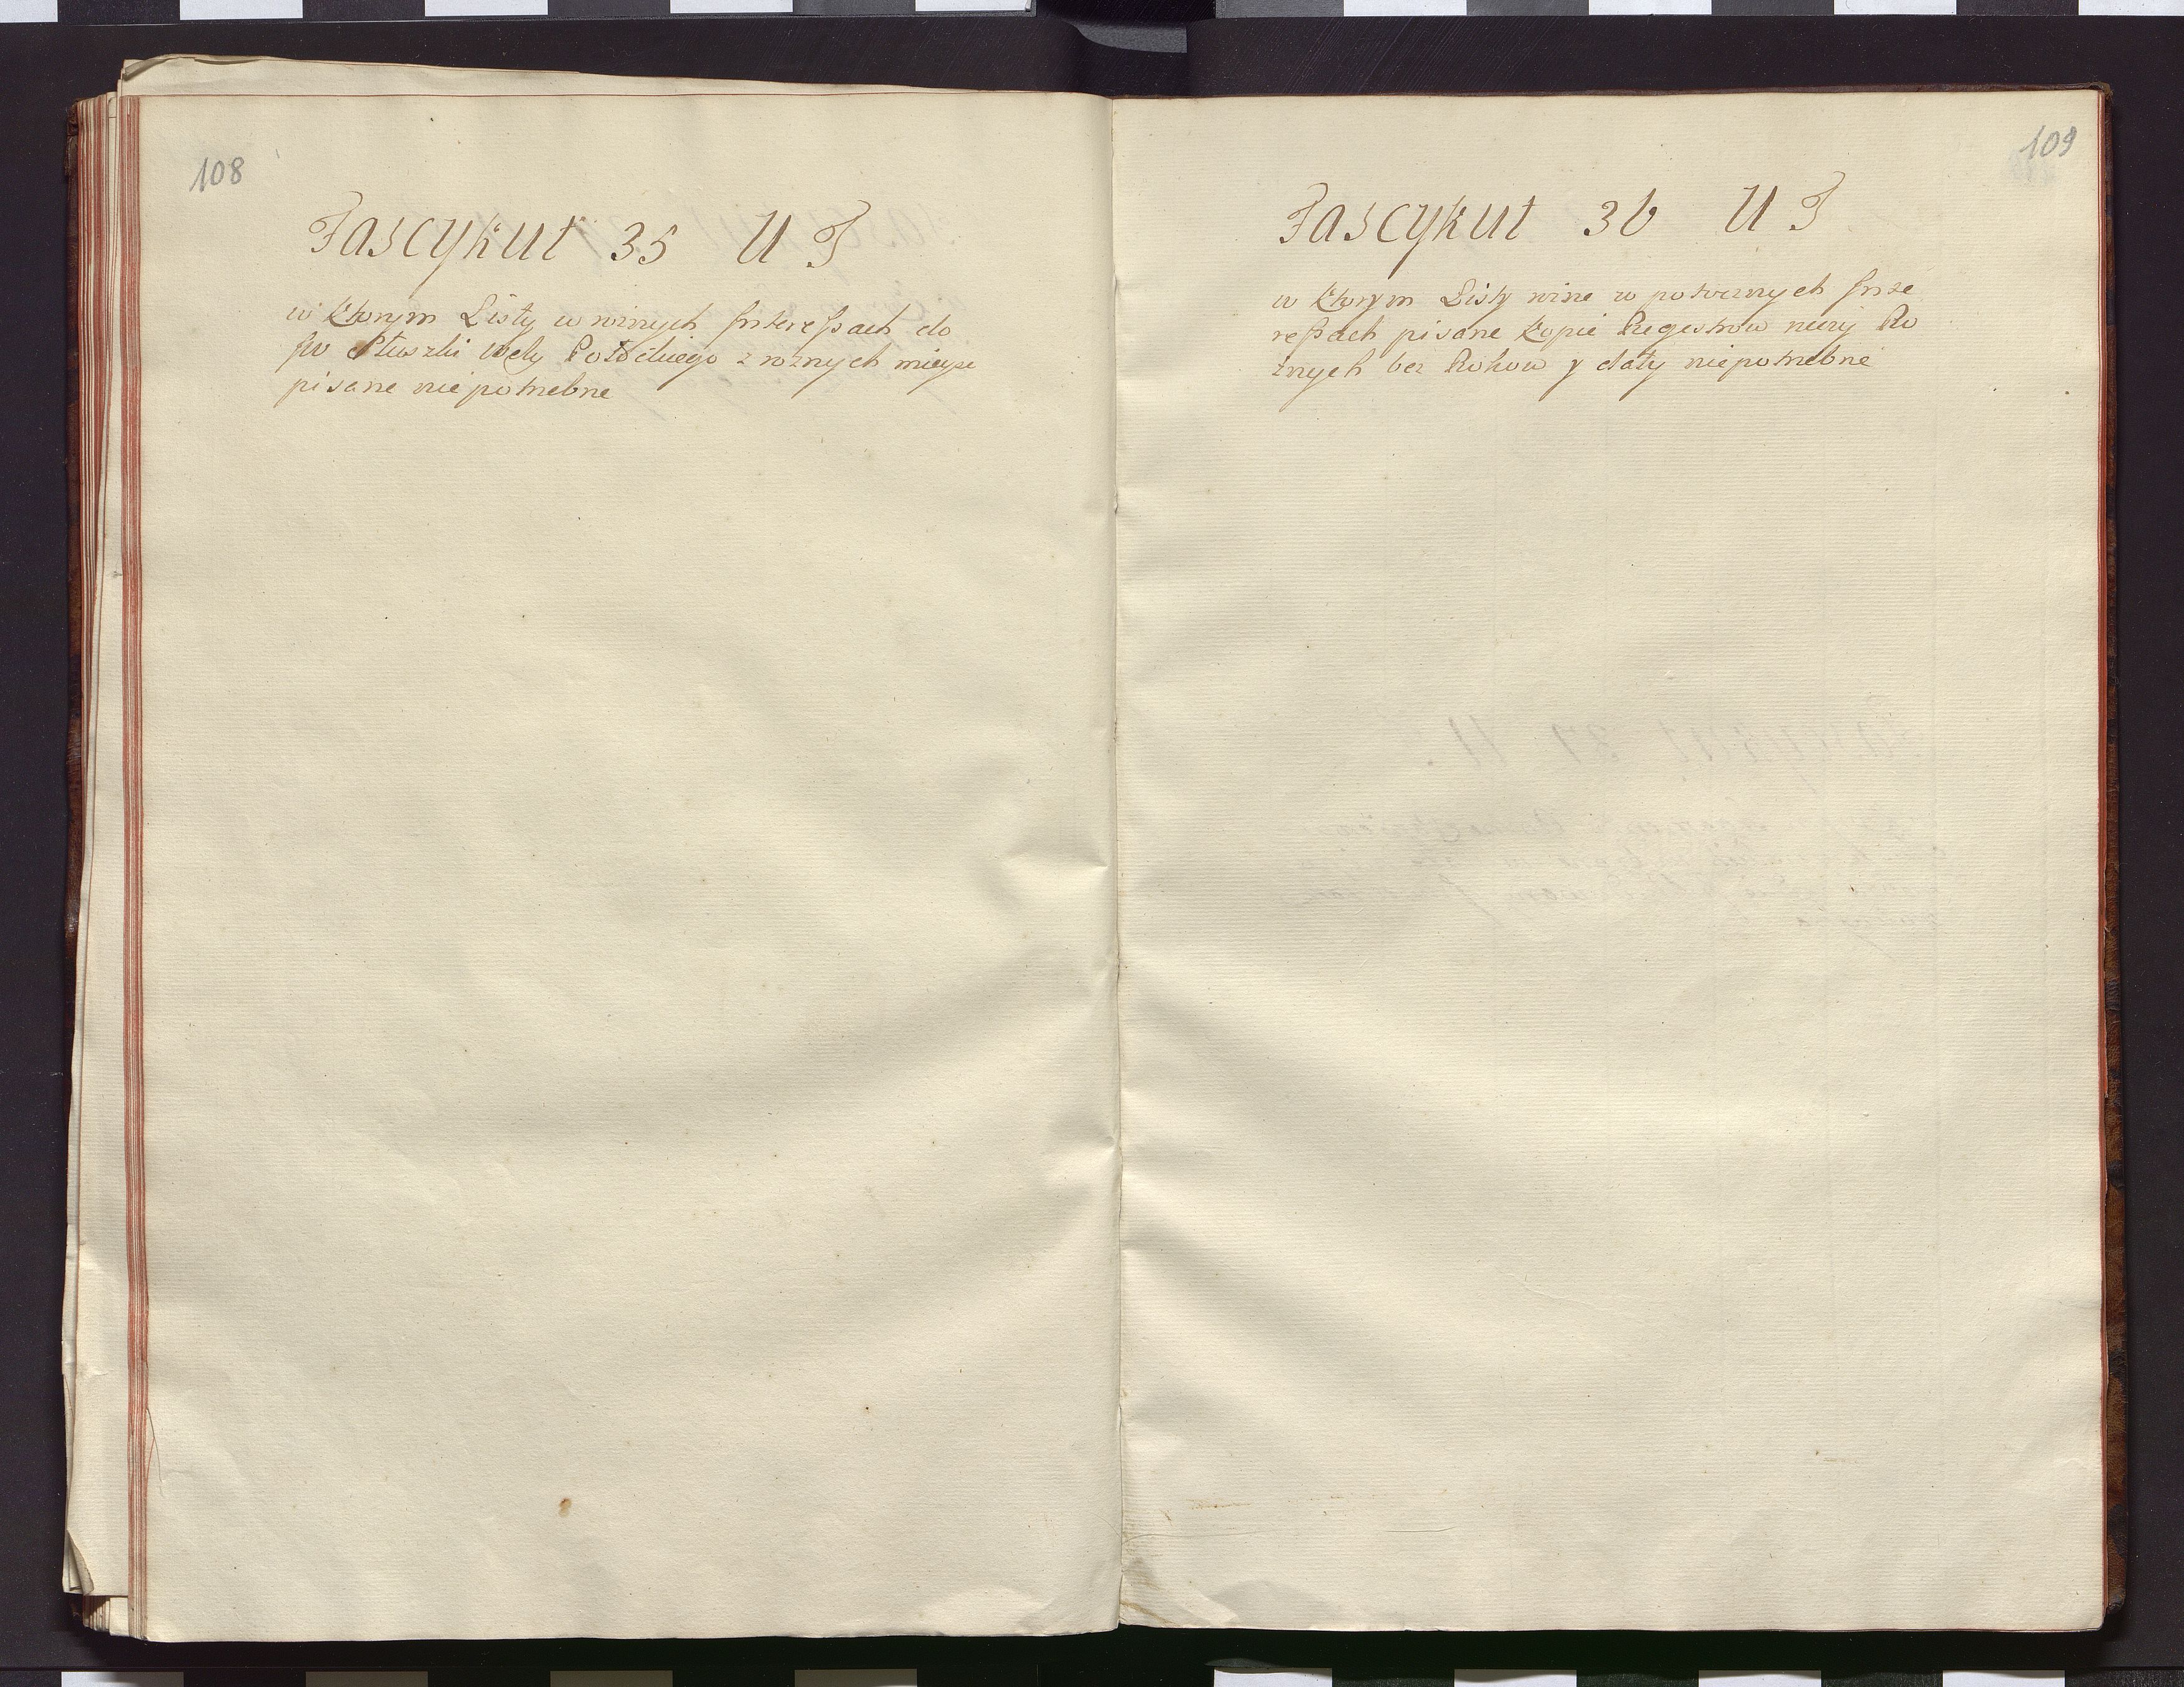 108
Fascykuł 35 U F
w ktorym Listy w roznych Interessach do
JW Kluszki Wdy Połockiego z roznych mieysc
pisane niepotrzebne
109
Fascykuł 36 U F
w ktorym Listy rozne w potocznych Inte
ressach pisane kopie Regestrow rzeczy Ro
żnych bez Rokow y daty niepotrzebne